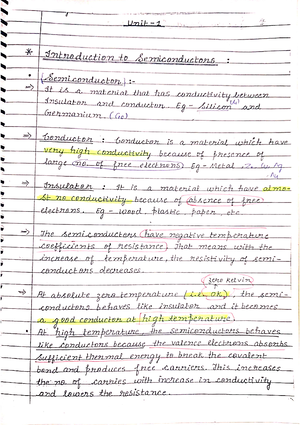 Unit-1
2
* Introduction to Semiconductors :
• Semiconductor :-
→ It is a material that has conductivity between
Insulator and conductor. Eg - Silicon (Si) and
Germanium. (Ge)
→ Conductor : Conductor is a material which have
very high conductivity because of presence of
large no. of free electrons) Eg - Metal
→ Insulator : It is a material which have almo-
st no conductivity because of absence of free
electrons. Eg - wood, plastic, paper etc.
→ The semiconductors (have negative temperature
coefficients of resistance). That means with the
increase of temperature, the resistivity of semi-
conductors decreases.
zero kelvin
→ At absolute zero temperature (i.e. 0K), the semi-
conductors behaves like insulator and it becomes
a good conductor at (high temperature).
• At high temperature, the semiconductors behaves
like conductors because the valence electrons absorbs
sufficient thermal energy to break the covalent
bond and produces free carriers. This increases
the no. of carries with increase in conductivity
and lowers the resistance.